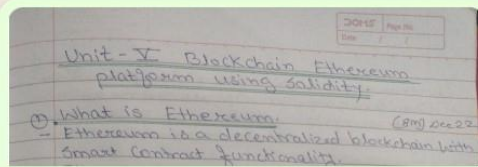 DOMS Page No.
Date / /
Unit - V Blockchain Ethereum
platform using Solidity.
① What is Ethereum. (8M) Dec 22
- Ethereum is a decentralized blockchain with
Smart Contract functionality.